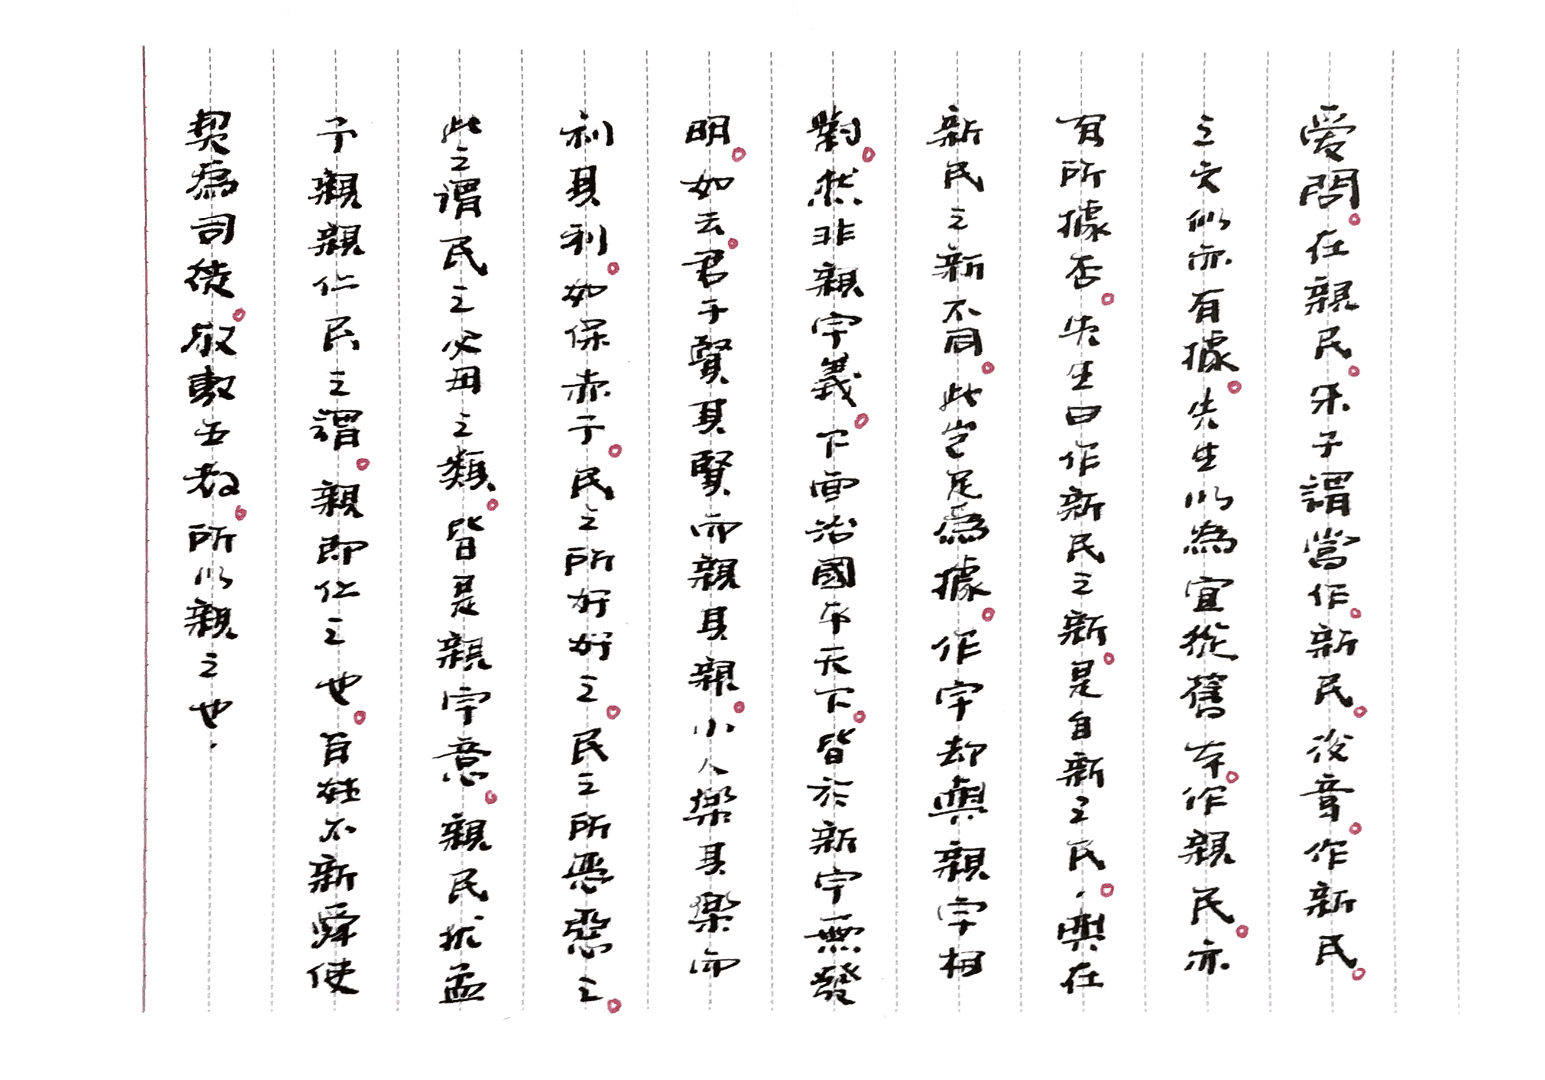 愛問。在親民。朱子謂當作。新民。後章。作新民。
之文似亦有據。先生以為宜從舊本。作親民。亦
有所據否。先生曰作新民之新。是自新之民。與在
新民之新不同。此豈足為據。作字却與親字相
對。然非親字義。下面治國平天下。皆於新字無發
明。如云。君子賢其賢而親其親。小人樂其樂而
利其利。如保赤子。民之所好好之。民之所惡惡之。
此之謂民之父母之類。皆是親字意。親民猶孟
子親親仁民之謂。親即仁之也。百姓不新舜使
契為司徒。敬敷五教。所以親之也.